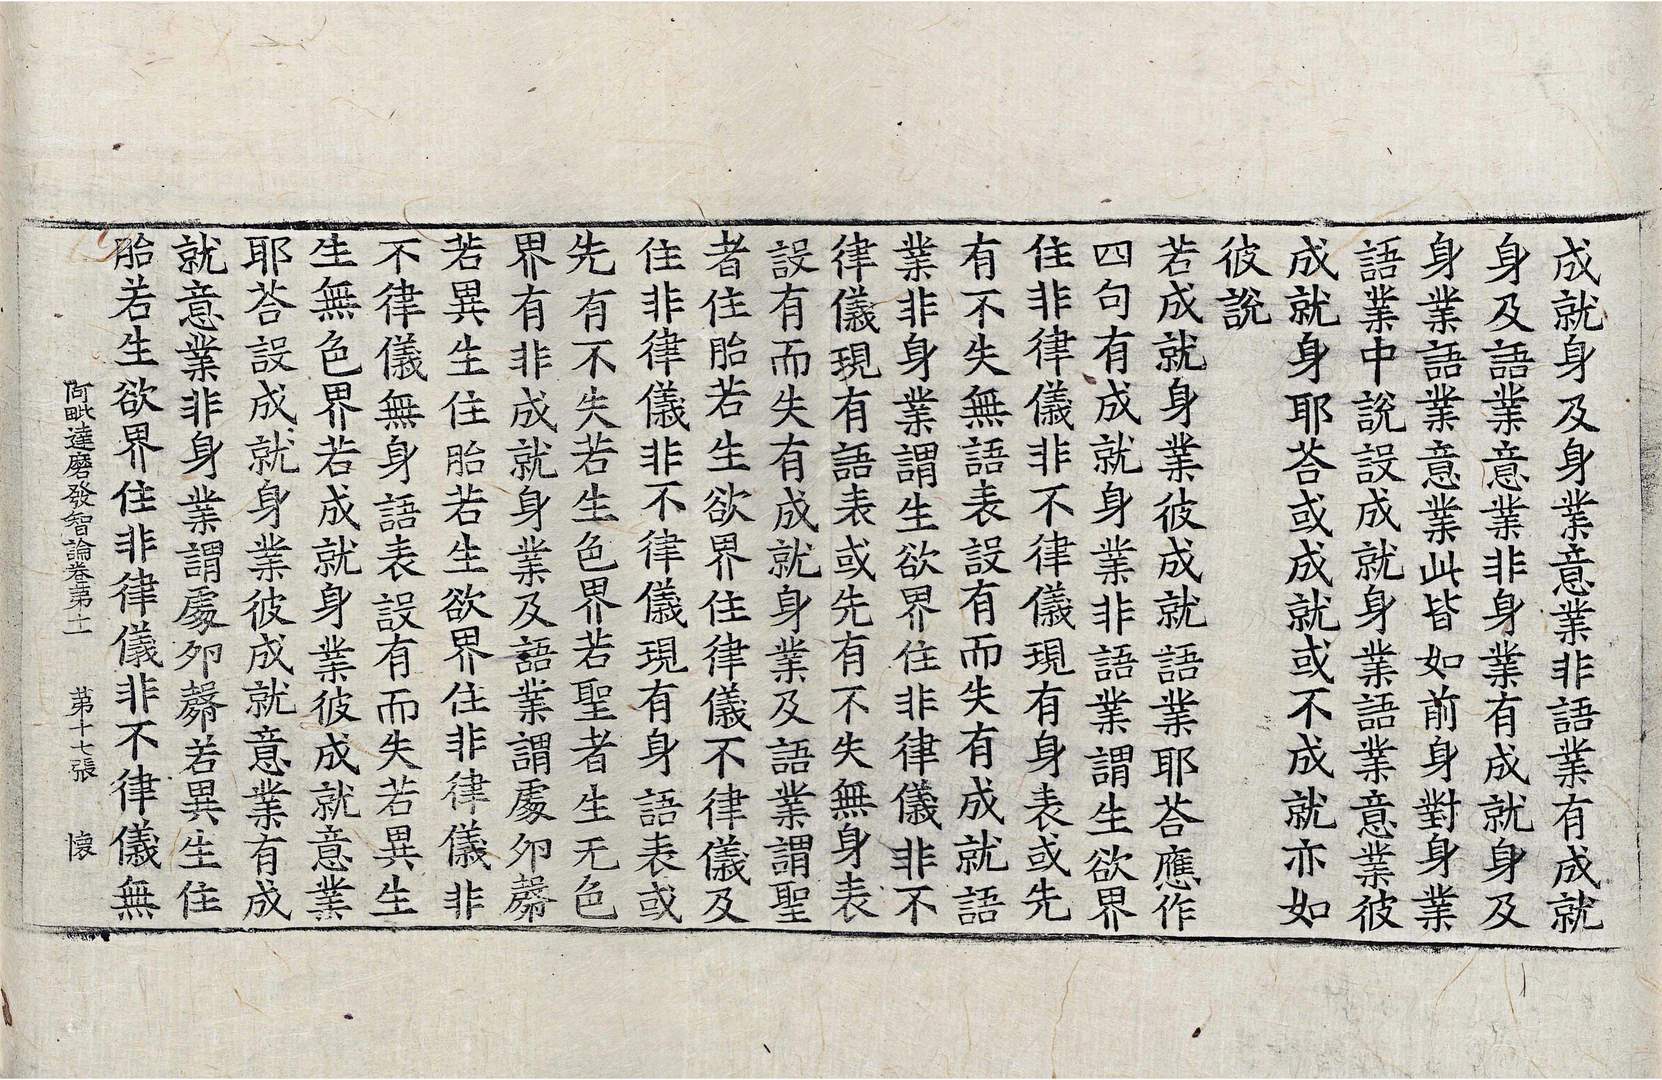 成就身及身業意業非語業有成就
身及語業意業非身業有成就身及
身業語業意業此皆如前身對身業
語業中說設成就身業語業意業彼
成就身耶荅或成就或不成就亦如
彼說
若成就身業彼成就語業耶荅應作
四句有成就身業非語業謂生欲界
住非律儀非不律儀現有身表或先
有不失無語表設有而失有成就語
業非身業謂生欲界住非律儀非不
律儀現有語表或先有不失無身表
設有而失有成就身業及語業謂聖
者住胎若生欲界住律儀不律儀及
住非律儀非不律儀現有身語表或
先有不失若生色界若聖者生无色
界有非成就身業及語業謂處夘㲉
若異生住胎若生欲界住非律儀非
不律儀無身語表設有而失若異生
生無色界若成就身業彼成就意業
耶荅設成就身業彼成就意業有成
就意業非身業謂處夘㲉若異生住
胎若生欲界住非律儀非不律儀無
阿毗達磨發智論卷第十一 第十七張 懷